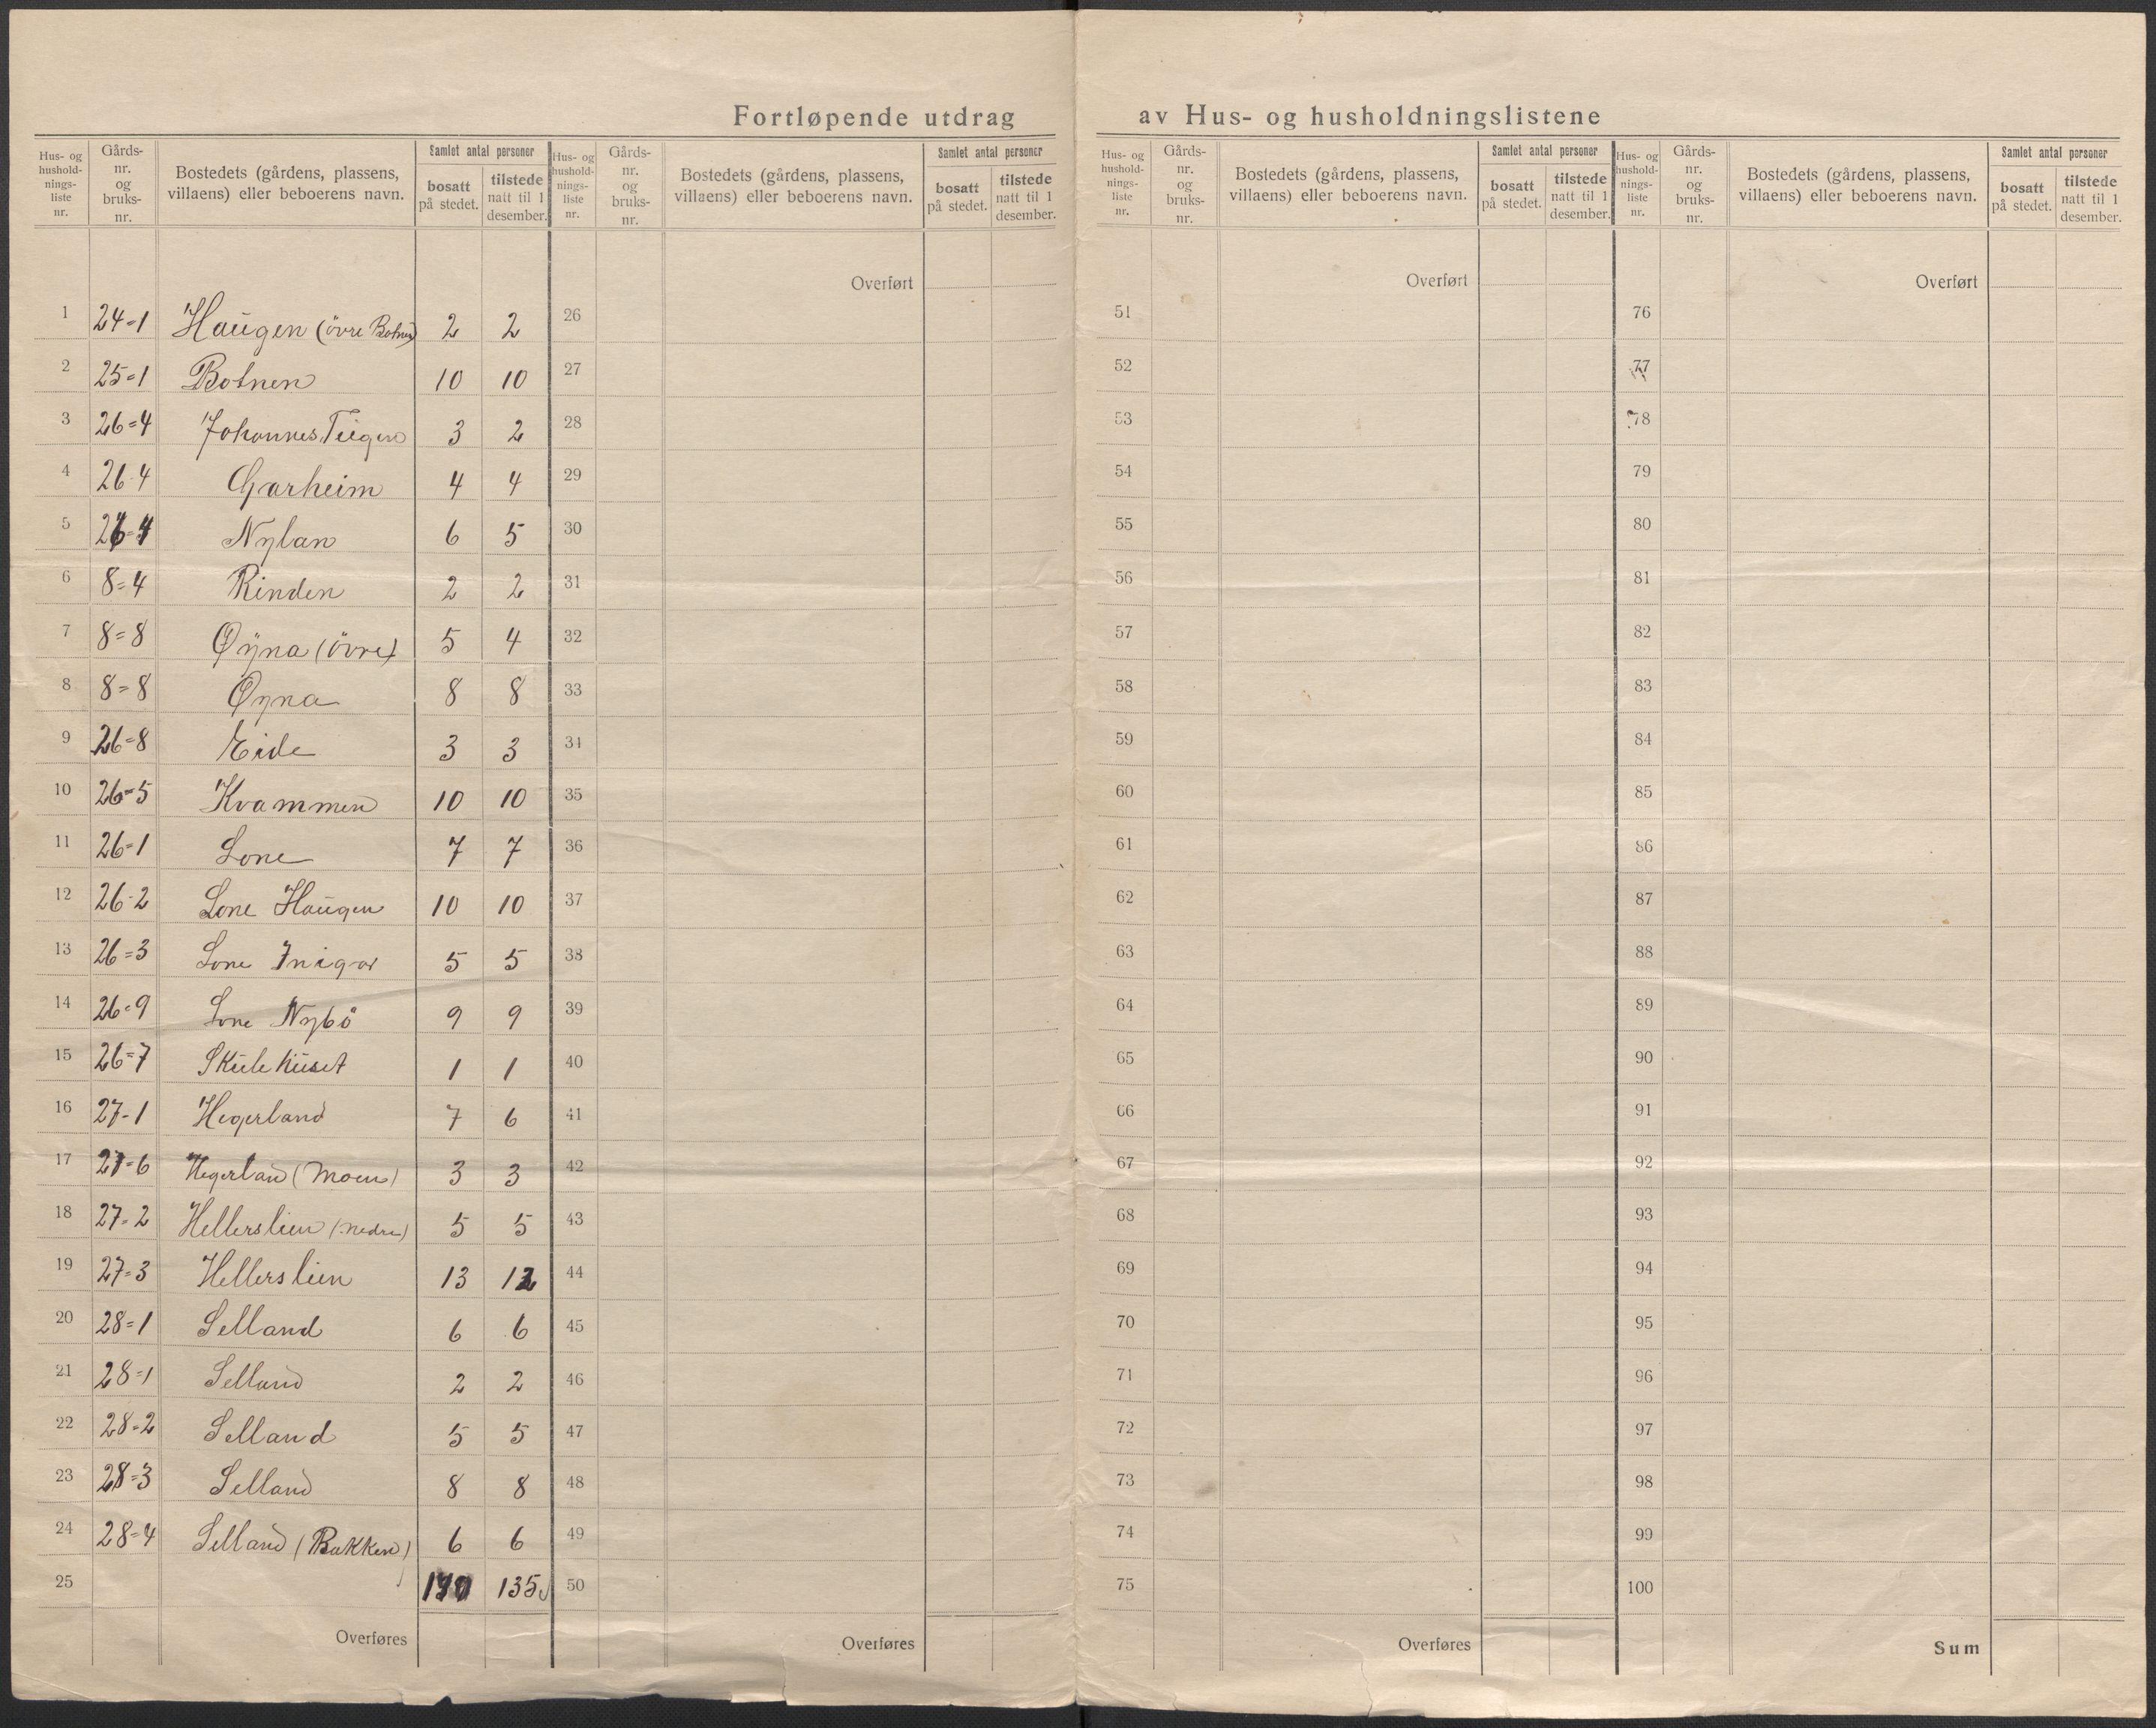 Fortløpende utdrag av Hus- og husholdningslistene
Hus- og husholdnings-liste nr. Gårds-nr. og bruks-nr. Bostedets (gårdens, plassens, villaens) eller beboerens navn. Samlet antal personer bosatt på stedet. tilstede natt til 1 desember.
1 24=1 Haugen (övre Botnen) 2 2
2 25=1 Botnen 10 10
3 26=4 Johannes Teigen 3 2
4 26-4 Garheim 4 4
5 26=4 Nylan 6 5
6 8=4 Rinden 2 2
7 8=8 Øÿna (övre) 5 4
8 8=8 Øyna 8 8
9 26=8 Eide 3 3
10 26=5 Kvammen 10 10
11 26=1 Lone 7 7
12 26-2 Lone Haugen 10 10
13 26=3 Lone Inigar 5 5
14 26=9 Lone Nybö 9 9
15 26=7 Skulehuset 1 1
16 27-1 Hegerland 7 6
17 27=6 Hegerland (Moen) 3 3
18 27=2 Hellerslien (nedre) 5 5
19 27=3 Hellerslien 13 12
20 28=1 Selland 6 6
21 28=1 Selland 2 2
22 28=2 Selland 5 5
23 28=3 Selland 8 8
24 28=4 Selland (Bakken) 6 6
25 135
Overføres
Hus- og husholdnings-liste nr. Gårds-nr. og bruks-nr. Bostedets (gårdens, plassens, villaens) eller beboerens navn. Samlet antal personer bosatt på stedet. tilstede natt til 1 desember.
Overført
26
27
28
29
30
31
32
33
34
35
36
37
38
39
40
41
42
43
44
45
46
47
48
49
50
Overføres
Hus- og husholdnings-liste nr. Gårds-nr. og bruks-nr. Bostedets (gårdens, plassens, villaens) eller beboerens navn. Samlet antal personer bosatt på stedet. tilstede natt til 1 desember.
Overført
51
52
53
54
55
56
57
58
59
60
61
62
63
64
65
66
67
68
69
70
71
72
73
74
75
Overføres
Hus- og husholdnings-liste nr. Gårds-nr. og bruks-nr. Bostedets (gårdens, plassens, villaens) eller beboerens navn. Samlet antal personer bosatt på stedet. tilstede natt til 1 desember.
Overført
76
77
78
79
80
81
82
83
84
85
86
87
88
89
90
91
92
93
94
95
96
97
98
99
100
Sum